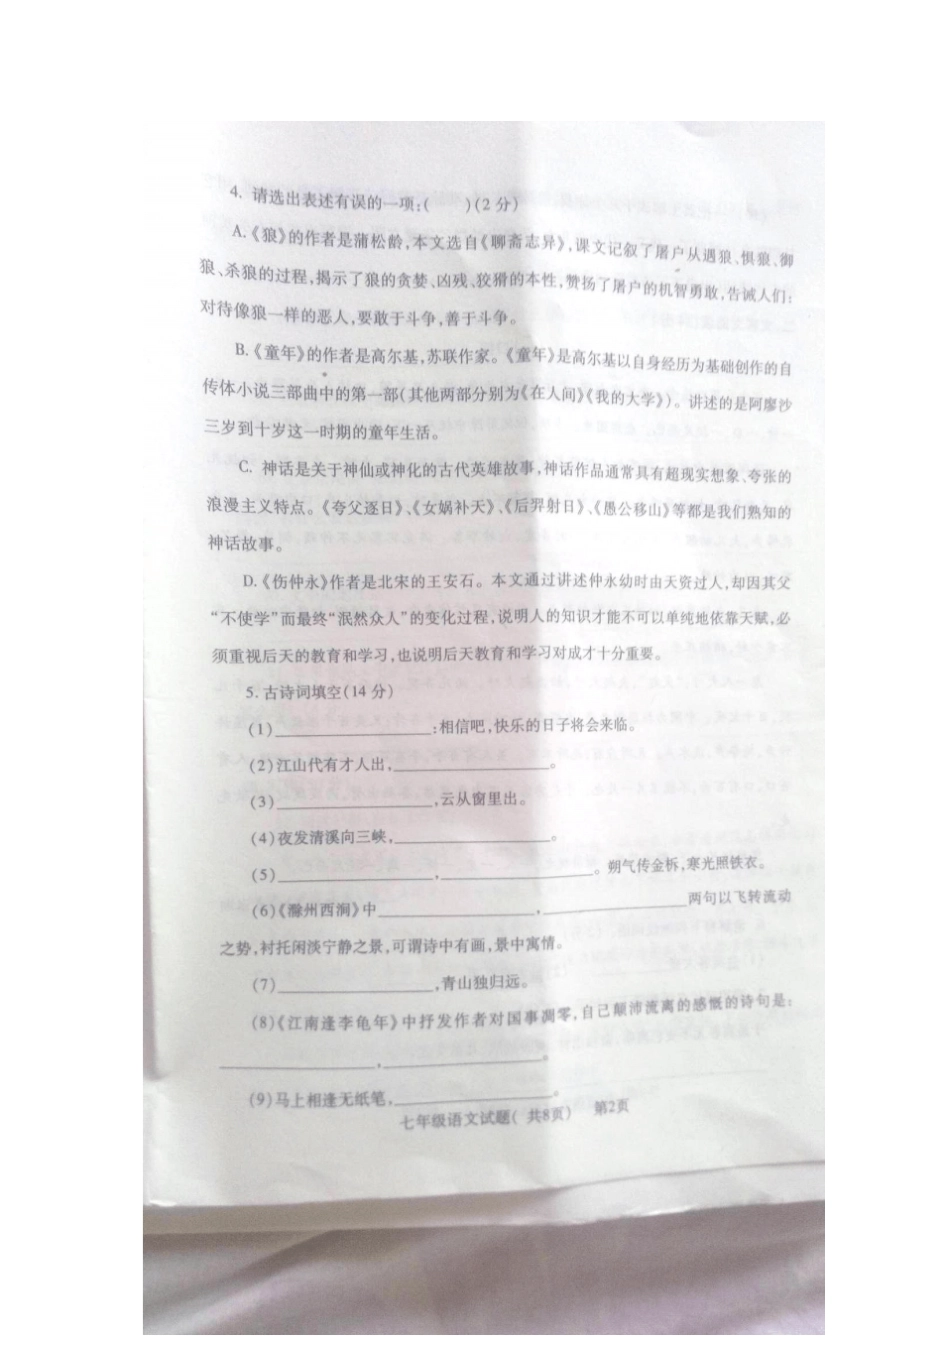 4. 请选出表述有误的一项:(    )(2 分)
A.《狼》的作者是蒲松龄,本文选自《聊斋志异》,课文记叙了屠户从遇狼、惧狼、御
狼、杀狼的过程,揭示了狼的贪婪、凶残、狡猾的本性,赞扬了屠户的机智勇敢,告诫人们:
对待像狼一样的恶人,要敢于斗争,善于斗争。
B.《童年》的作者是高尔基,苏联作家。《童年》是高尔基以自身经历为基础创作的自
传体小说三部曲中的第一部(其他两部分别为《在人间》《我的大学》)。讲述的是阿廖沙
三岁到十岁这一时期的童年生活。
C. 神话是关于神仙或神化的古代英雄故事,神话作品通常具有超现实想象、夸张的
浪漫主义特点。《夸父逐日》、《女娲补天》、《后羿射日》、《愚公移山》等都是我们熟知的
神话故事。
D.《伤仲永》作者是北宋的王安石。本文通过讲述仲永幼时由天资过人,却因其父
“不使学”而最终“泯然众人”的变化过程,说明人的知识才能不可以单纯地依靠天赋,必
须重视后天的教育和学习,也说明后天教育和学习对成才十分重要。
5. 古诗词填空(14 分)
(1)______________:相信吧,快乐的日子将会来临。
(2)江山代有才人出,______________。
(3)______________,云从窗里出。
(4)夜发清溪向三峡,______________。
(5)______________,______________。朔气传金柝,寒光照铁衣。
(6)《滁州西涧》中______________,______________两句以飞转流动
之势,衬托闲淡宁静之景,可谓诗中有画,景中寓情。
(7)______________,青山独归远。
(8)《江南逢李龟年》中抒发作者对国事凋零,自己颠沛流离的感慨的诗句是:
______________,______________。
(9)马上相逢无纸笔,______________。
七年级语文试题( 共8页)    第2页